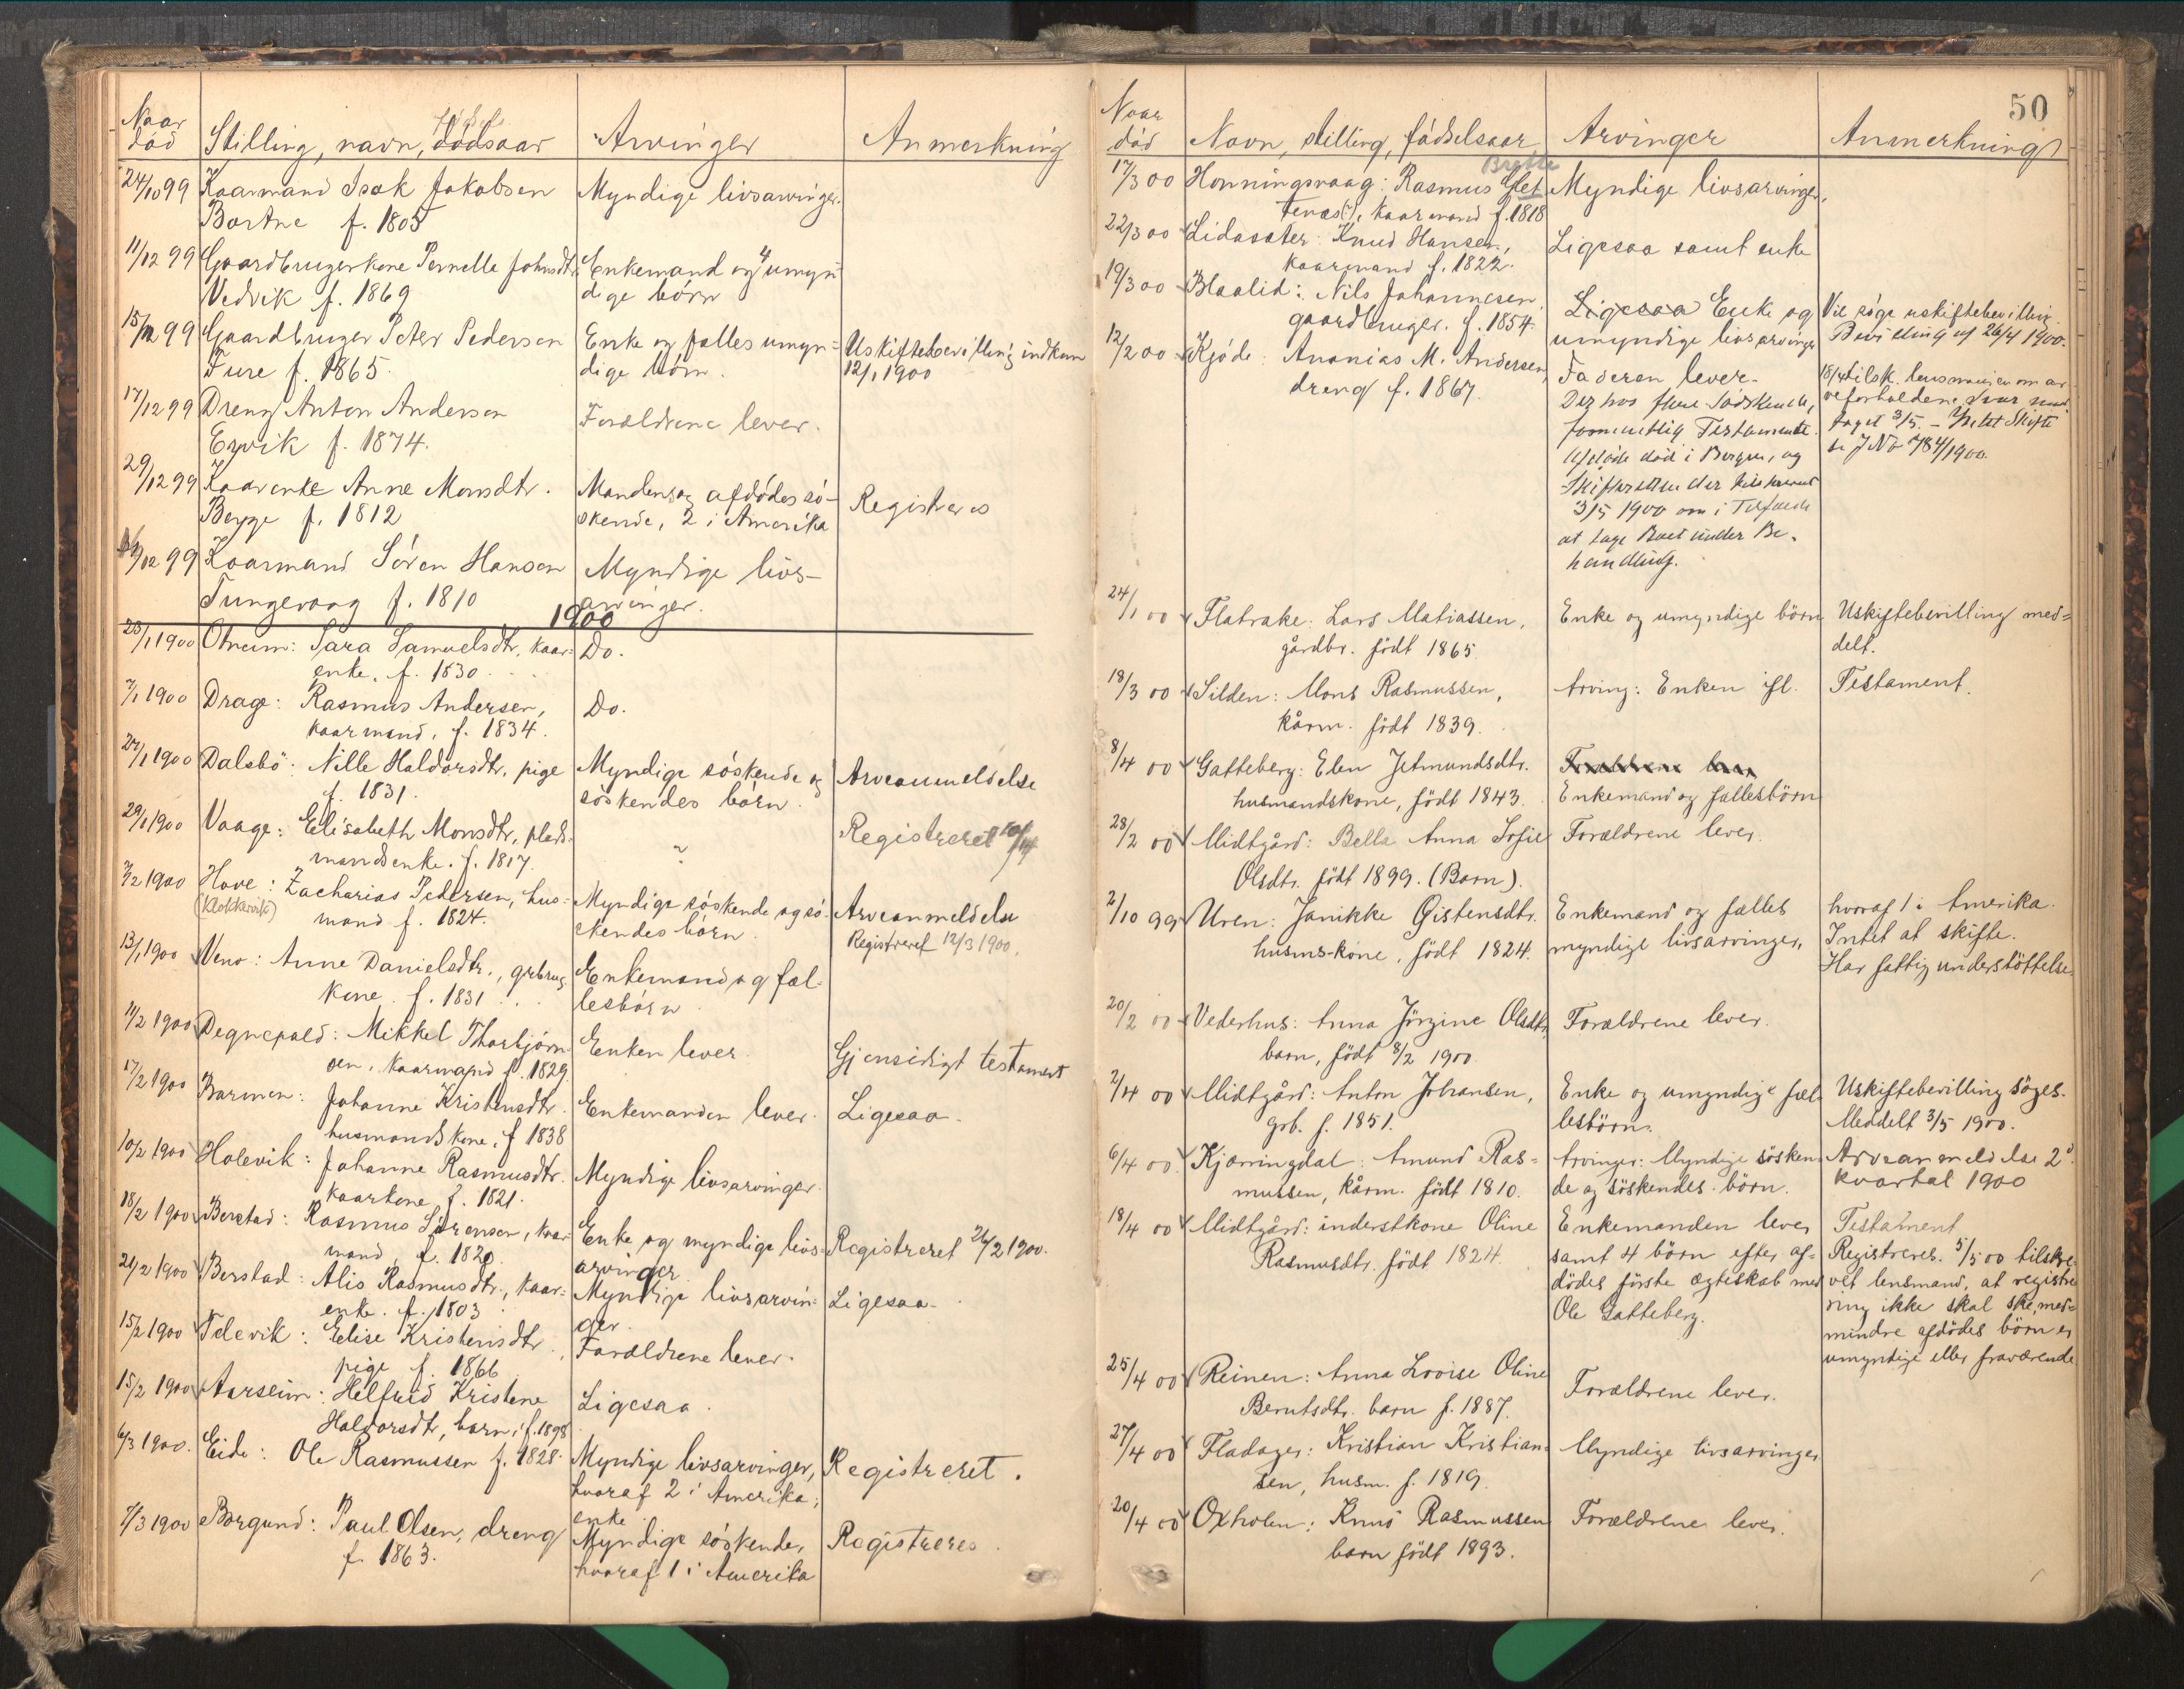 Naar
død
Stilling, navn, dødsaar
Arvinger
Anmerkning
24/10 99
Kaarmand Isak Jakobsen
Bortne f. 1805
Myndige livsarvinger.
11/12 99
Gaardbrugerkone Pernelle Johnsdtr.
Vedvik f. 1869
Enkemand og 4 umyn=
dige børn
15/12 99
Gaardbruger Peter Pedersen
Fure f. 1865.
Enke og fælles umyn=
dige børn.
Uskiftebevilling indkom
12/1 1900
17/12 99
Dreng Anton Andersen
Ervik f. 1874.
Forældrene lever.
29/12 99
Kaarenke Anne Monsdtr.
Berge f. 1812
Mandens og afdødes sø-
skende, 2 i Amerika
Registreres
/12 99
Kaarmand Søren Hansen
Tungevaag f. 1810
Myndige livs-
arvinger.
1900
25/1 1900
Otneim: Sara Samuelsdtr. kaar=
enke, f. 1830.
Do.
7/1 1900
Drage: Rasmus Andersen,
kaarmand, f. 1834.
Do.
27/1 1900
Dalsbö: Nille Haldorsdtr, pige
f. 1831.
Myndige søskende og
søskendes børn.
Arveanmeldelse
29/1 1900
Vaage: Elisabeth Monsdtr, plads-
mandsenke. f. 1817.
?
Registreret
3/2 1900
Hove: Zacharias Pedersen, hus=
(Klokkervik)
mand f. 1824.
Myndige søskende og sø-
skendes børn.
Arveanmeldelse
Registreret 12/3 1900.
13/1 1900
Veno: Anne Danielsdtr., grbrug.
kone f. 1831
Enkemand og fæl-
lesbörn
11/2 1900
Degnepold: Mikkel Thorbjørn-
sen, kaarmand f. 1829.
Enken lever.
Gjensidigt testament
17/2 1900
Barmen: Johanne Kristensdtr.
husmandskone, f 1838
Enkemanden lever.
Ligesaa.
10/2 1900
Holevik: Johanne Rasmusdtr.
kaarkone f. 1821.
Myndige livsarvinger.
18/2 1900
Berstad: Rasmus Sørensen, kaar-
mand, f. 1820.
Enke og myndige livs-
arvinger.
Registreret 26/2 1900.
21/2 1900
Berstad: Alis Rasmusdtr., kaar=
enke. f. 1803
Myndige livsarvin-
ger.
Ligesaa.
15/2 1900
Televik: Elise Kristensdtr.
pige f. 1866
Forældrene lever.
15/2 1900
Aarseim: Helfrid Kristine
Haldorsdtr, barn, f. 1898
Ligesaa.
6/3 1900.
Eide: Ole Rasmussen f. 1828.
Myndige livsarvinger,
hvoraf 2 i Amerika;
enke
Registreret.
7/3 1900
Borgund: Paul Olsen, dreng
f. 1863.
Myndige søskende,
hvoraf 1 i Amerika
Registreres.
50
Naar
død
Navn, stilling, fødselsaar
Arvinger
Anmerkning
17/3 00
Honningsvaag: Rasmus
tenæs(?), kaarmand f. 1818
Myndige livsarvinger,
22/3 00
Lidasæter: Knud Hansen,
kaarmand f. 1822.
Ligesaa samt enke
19/3 00
Blaalid: Nils Johannesen
gaardbruger. f. 1854.
Ligesaa Enke og
umyndige livsarvinger
Vil søge uskiftebevilling.
Bevilling af 26/4 1900.
12/2 00
Kjøde: Ananias M. Andersen,
dreng f. 1867.
Faderen lever.
Dez hos flere Sødskende,
formentlig Testamente.
Afdøde død i Bergen, og
Skifteretten der
3/5 1900 om i Tilfælde
at tage Boet under Be-
handling.
18/4 tilsk. lensmanden om ar-
veforholdene. Svar mod-
taget 3/5. – Intet Skifte
se J No 784/1900.
24/1 00
Flatrake: Lars Matiassen,
gårdbr. født 1865
Enke og umyndige børn
Uskiftebevilling med=
delt.
18/3 00
Silden: Mons Rasmussen,
kårm. født 1839.
Arving: Enken ifl.
Testament.
8/4 00
Gatteberg: Elen Jetmundsdtr.
husmandskone, født 1843.
Enkemand og fællesbörn
28/2 00
Midtgård: Bella Anna Sofie
Olsdtr. født 1899. (Barn).
Forældrene lever.
2/10 99
Uren: Janikke Øistensdtr.
husms-kone, født 1824.
Enkemand og fælles
myndige livsarvinger,
hvoraf 1 i Amerika.
Intet at skifte.
Har fattigunderstöttelse.
20/2 00
Vederhus: Anna Jörgine Olsdtr,
barn, født 8/2 1900.
Forældrene lever.
2/4 00
Midtgård: Anton Johansen,
grb. f. 1851.
Enke og umyndige fæl-
lesbörn.
Uskiftebevilling söges.
Meddelt 3/5 1900.
6/4 00.
Kjærringdal: Amund Ras=
mussen, kårm. født 1810.
Arvinger: Myndige søsken-
de og söskendes börn.
Arveanmeldelse 2d
kvartal 1900
18/4 00
Midtgård: inderstkone Oline
Rasmusdtr. født 1824.
Enkemanden lever
samt 4 börn efter af-
dödes förste ægteskab med
Ole Gatteberg.
Testament
Registreres. 5/5 00 tilskre-
vet lensmand, at registre-
ring ikke skal ske, med=
mindre afdödes börn er
umyndige eller fraværende
25/4 00
Reinen: Anna Lovise Oline
Berntsdtr. barn f. 1887.
Forældrene lever.
27/4 00
Fladager: Kristian Kristian=
sen, husm. f. 1819.
Myndige livsarvinger
20/4 00
Oxholen: Knud Rasmussen
barn født 1893.
Forældrene lever.